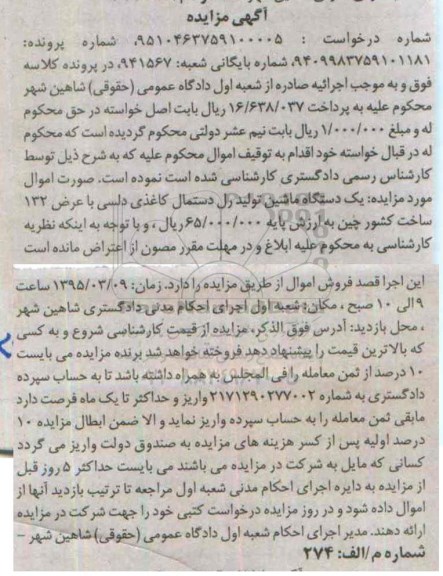 آگهی مزایده
شماره درخواست : ۹۵۱۰۴۶۳۷۵۹۱۰۰۰۰۵، شماره پرونده:
۹۴۰۹۹۸۳۷۵۹۱۰۱۱۸۱، شماره بایگانی شعبه: ۹۴۱۵۶۷، در پرونده کلاسه
فوق و به موجب اجرائیه صادره از شعبه اول دادگاه عمومی (حقوقی) شاهین شهر
محکوم علیه به پرداخت ۱۶/۶۳۸/۰۳۷ ریال بابت اصل خواسته در حق محکوم
له و مبلغ ۱/۰۰۰/۰۰۰ ریال بابت نیم عشر دولتی محکوم گردیده است که محکوم
له در قبال خواسته خود اقدام به توقیف اموال محکوم علیه که به شرح ذیل توسط
کارشناس رسمی دادگستری کارشناسی شده است نموده است. صورت اموال
مورد مزایده: یک دستگاه ماشین تولید رل دستمال کاغذی دلسی با عرض ۱۳۲
ساخت کشور چین به ارزش پایه ۶۵/۰۰۰/۰۰۰ ریال، و با توجه به اینکه نظریه
کارشناسی به محکوم علیه ابلاغ و در مهلت مقرر مصون از اعتراض مانده است
این اجرا قصد فروش اموال از طریق مزایده را دارد. زمان: ۱۳۹۵/۰۳/۰۹ ساعت
۹ الی ۱۰ صبح ، مکان: شعبه اول اجرای احکام مدنی دادگستری شاهین شهر
، محل بازدید: آدرس فوق الذکر، مزایده از قیمت کارشناسی شروع و به کسی
که بالاترین قیمت را پیشنهاد دهد فروخته خواهد شد برنده مزایده می بایست
۱۰ درصد از ثمن معامله را فی المجلس به همراه داشته باشد تا به حساب سپرده
دادگستری به شماره ۲۱۷۱۲۹۰۲۷۷۰۰۲ واریز و حداکثر تا یک ماه فرصت دارد
مابقی ثمن معامله را به حساب سپرده واریز نماید و الا ضمن ابطال مزایده ۱۰
درصد اولیه پس از کسر هزینه های مزایده به صندوق دولت واریز می گردد
کسانی که مایل به شرکت در مزایده می باشند می بایست حداکثر ۵ روز قبل
از مزایده به دایره اجرای احکام مدنی شعبه اول مراجعه تا ترتیب بازدید آنها از
اموال داده شود و در روز مزایده درخواست کتبی خود را جهت شرکت در مزایده
ارائه دهند. مدیر اجرای احکام شعبه اول دادگاه عمومی (حقوقی) شاهین شهر -
شماره م/الف: ۲۷۴